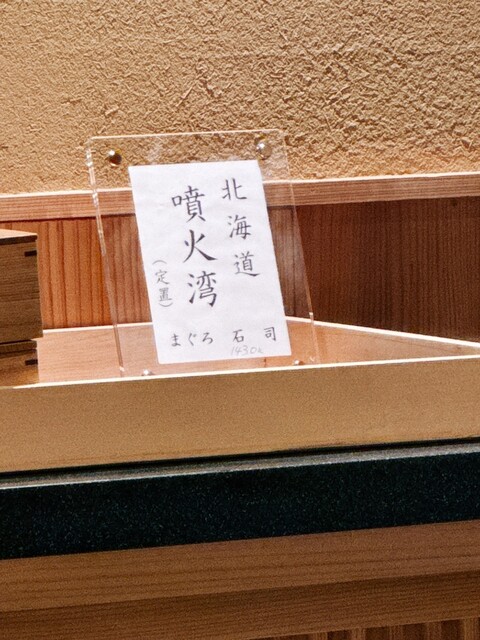 北海道
噴火湾
(定置)
まぐろ 石司
143.0k